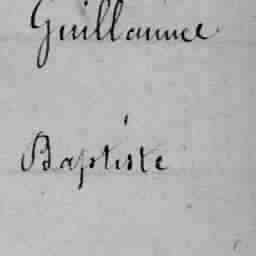 Guillaume
Baptiste